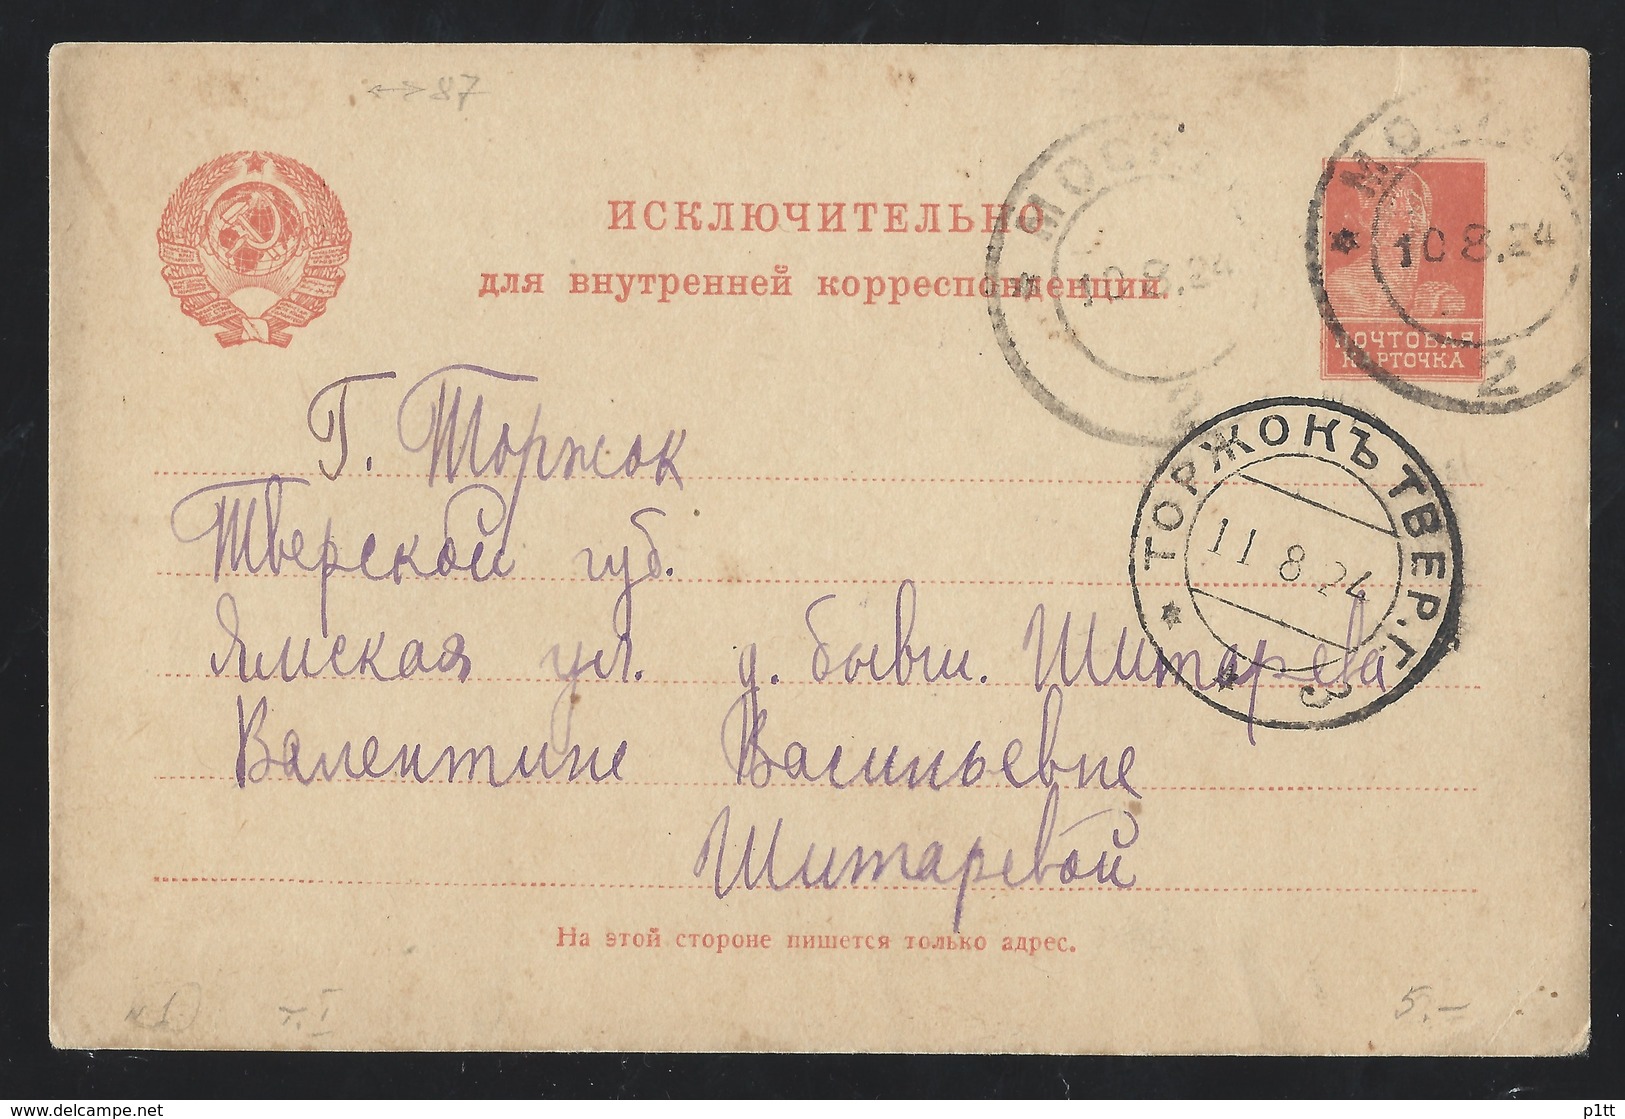 ↔ 87
ИСКЛЮЧИТЕЛЬНО
для внутренней корреспонденции.
МОСКВА
10 8.24
2
МОСКВА
10 8.24
2
ПОЧТОВАЯ
КАРТОЧКА
ТОРЖОКЪ ТВЕР.Г.
11 8 24
З
Г. Торжок
Тверской губ.
Ямская ул. д. бывш. Шитарева
Валентине Васильевне
Шитаревой
На этой стороне пишется только адрес.
N 1 т. I 5.-
www.delcampe.net
p1tt